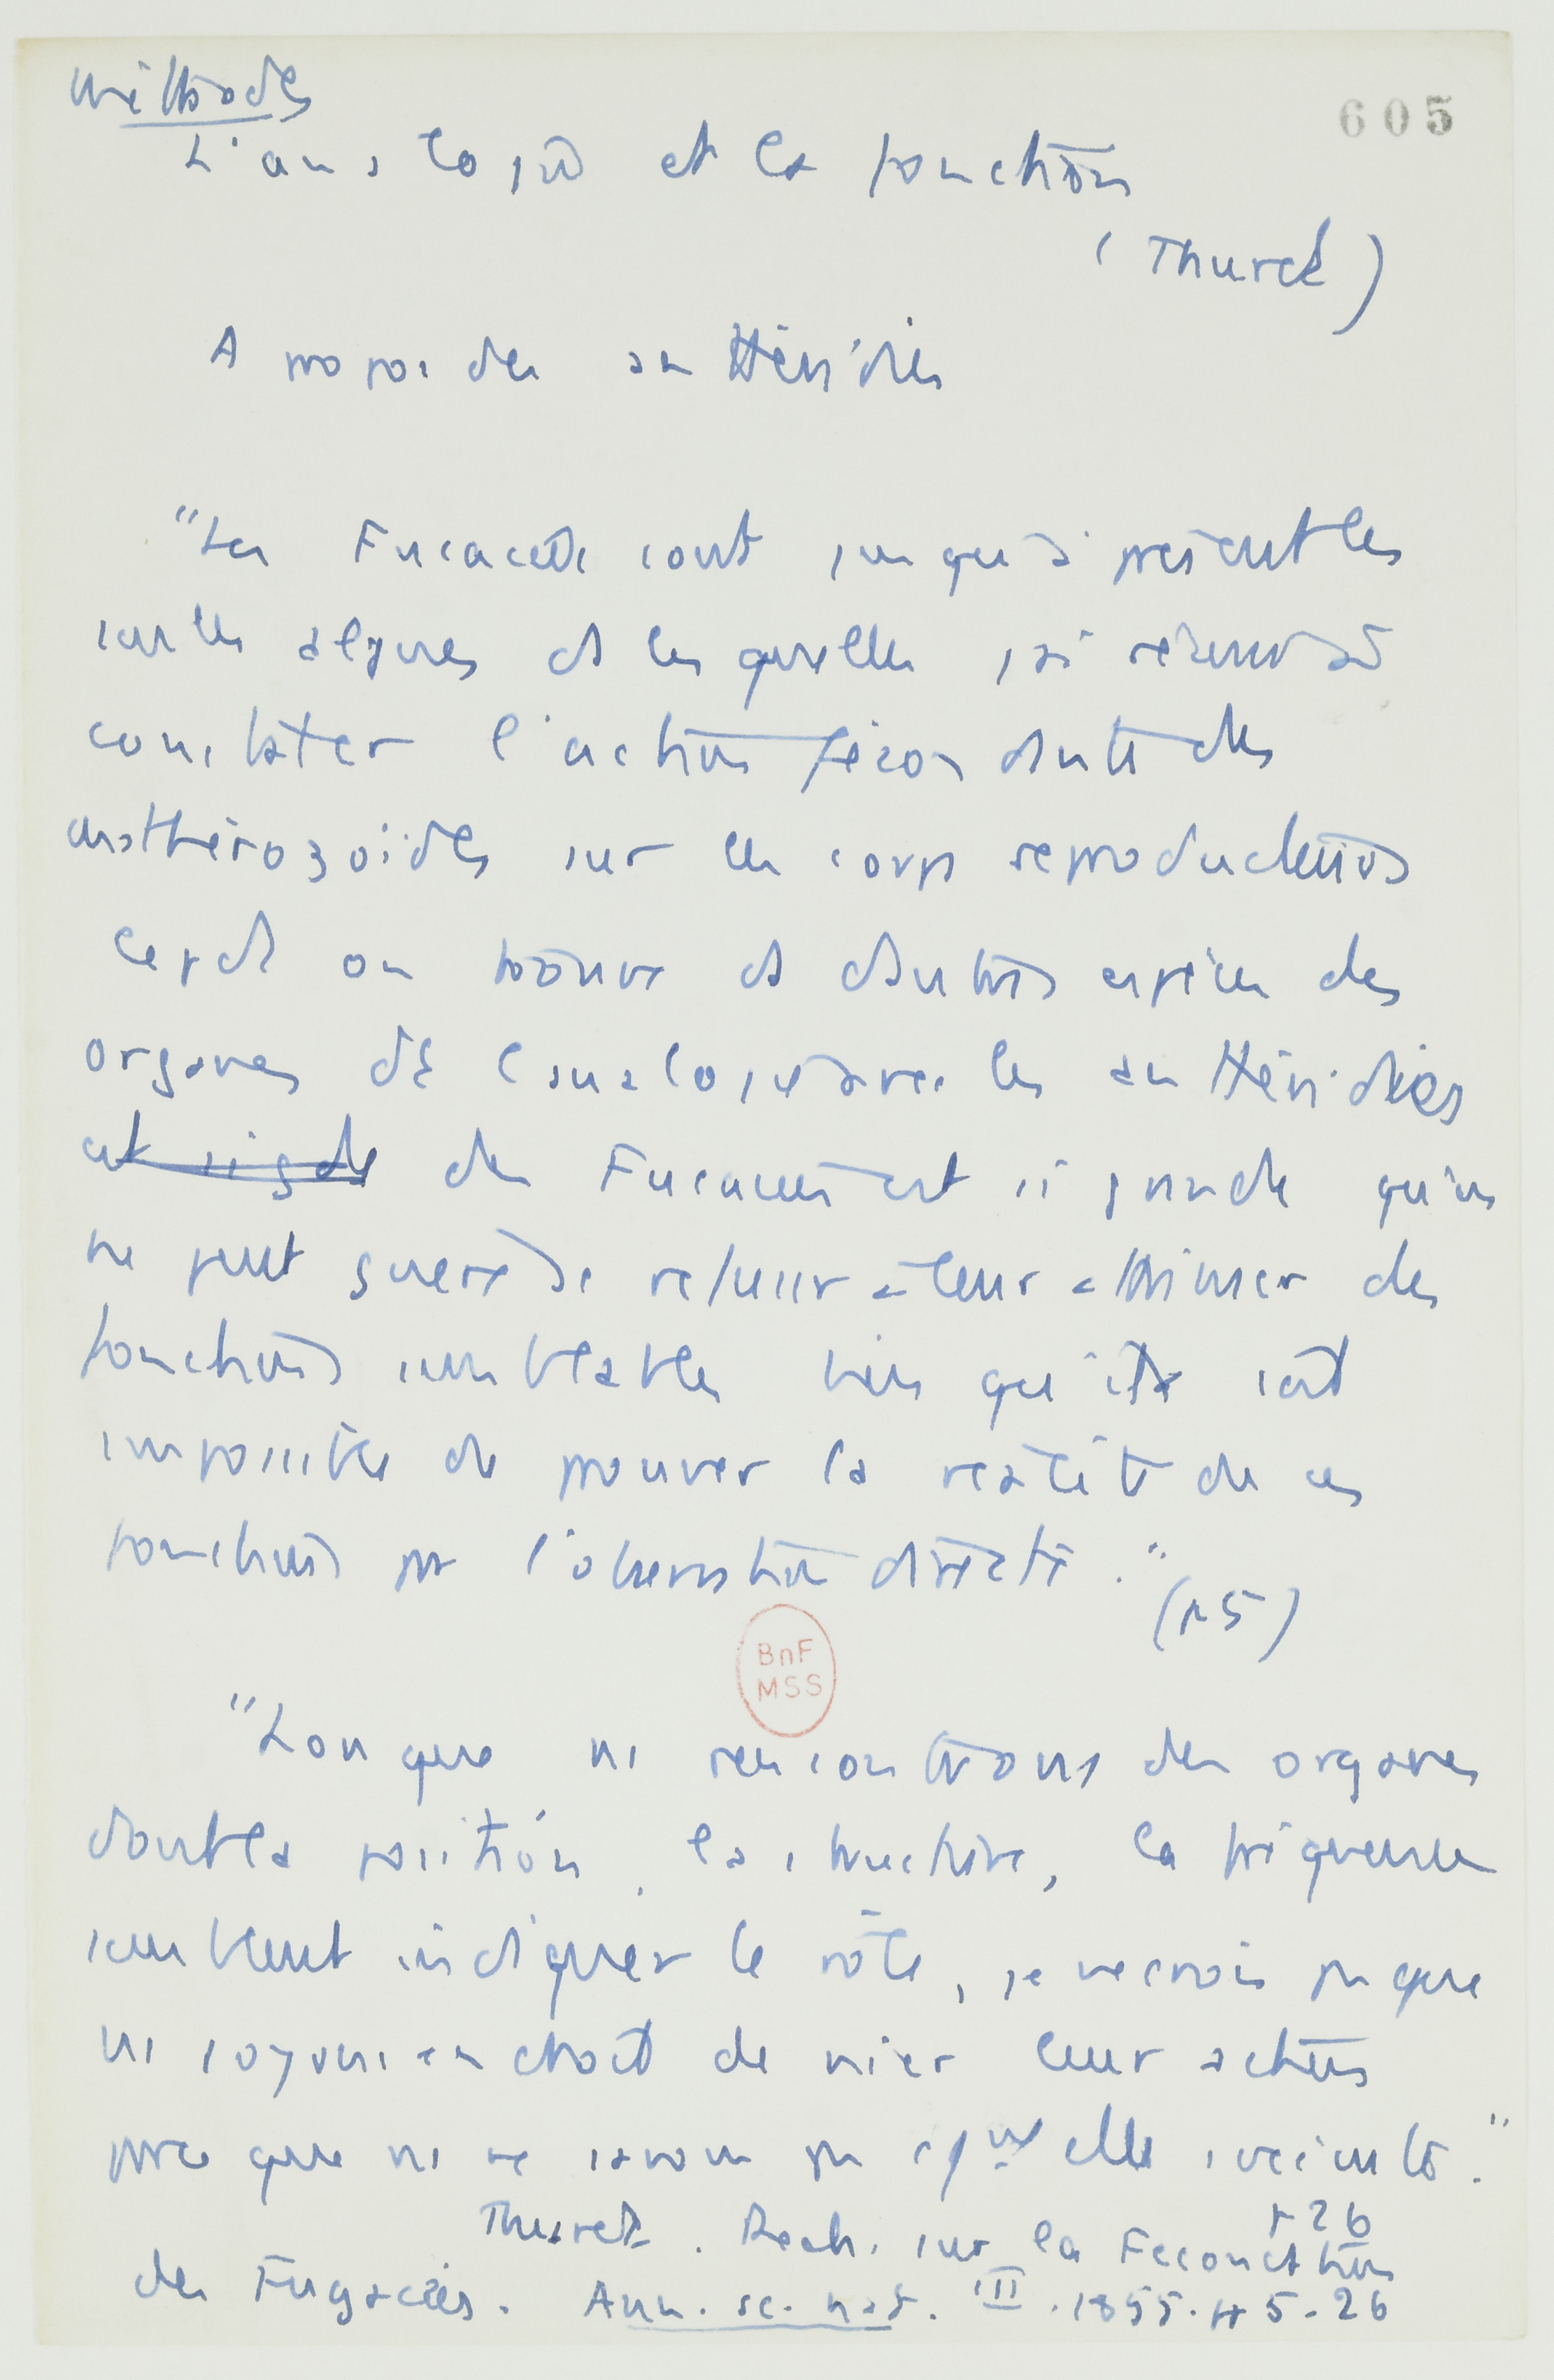 Méthodes
605
L'analogie et la fonction
(Thuret)
A propos des anthéridies
"Les Fucacées sont jusqu'à présent les
seules algues ds lesquelles j'ai réussi à
constater l'action fécondante des
anthérozoïdes sur les corps reproducteurs
Cepdt on trouve ds d'autres espèces des
organes dt l'analogie avec les anthéridies
des Fucacées est si grande qu'on
ne peut guère se refuser à leur attribuer des
fonctions semblables bien qu'il soit
impossible de prouver la réalité de ces
fonctions par l'observation directe."
(p 5)
BnF
MSS
"Lorsque ns rencontrons des organes
dont la position, la structure, la fréquence
semblent indiquer le rôle, je ne crois pas que
ns soyons en droit de nier leur action
parce que ns ne savons pas elle s'exécute."
p 26
Thuret. Rech. sur la Fécondation
des Fugacées. Ann. sc. nat. III. 1855. pp 5-26